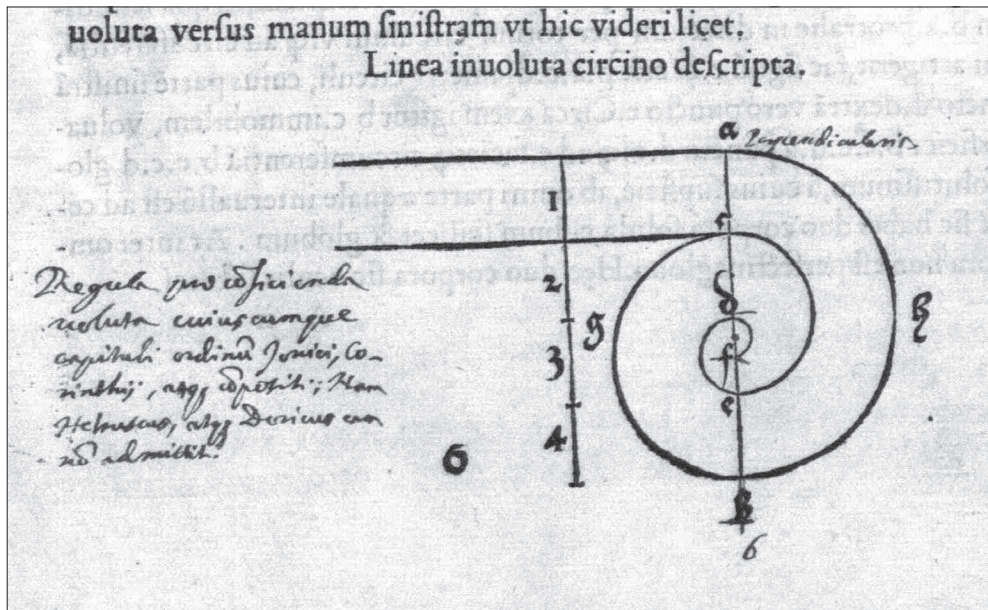 uoluta verſus manum ſiniſtram vt hic videri licet.
Linea inuoluta circino deſcripta.
a perpendicularis
1
c
2
d
g
h
3
f
e
4
6
b
6
Regula pro coficienda
voluta cuiuscumque
capituli ordinū Jonici, Co-
rinthij, atqȝ cōpositi; Nam
Hetruscus, atqȝ Doricus eam
nō admittit.